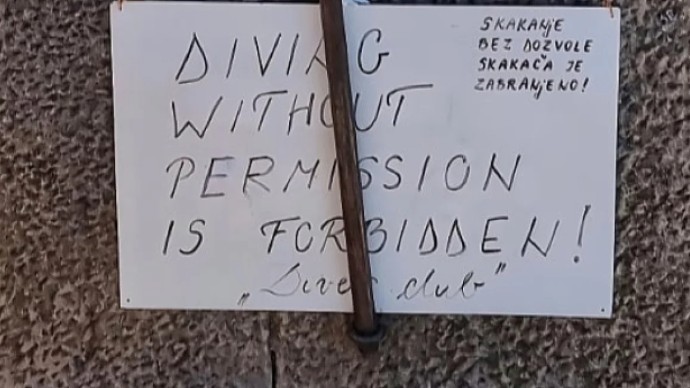 DIVING
WITHOUT
PERMISSION
IS FORBIDDEN!
„Diver club"
SKAKANJE
BEZ DOZVOLE
SKAKAČA JE
ZABRANJENO!